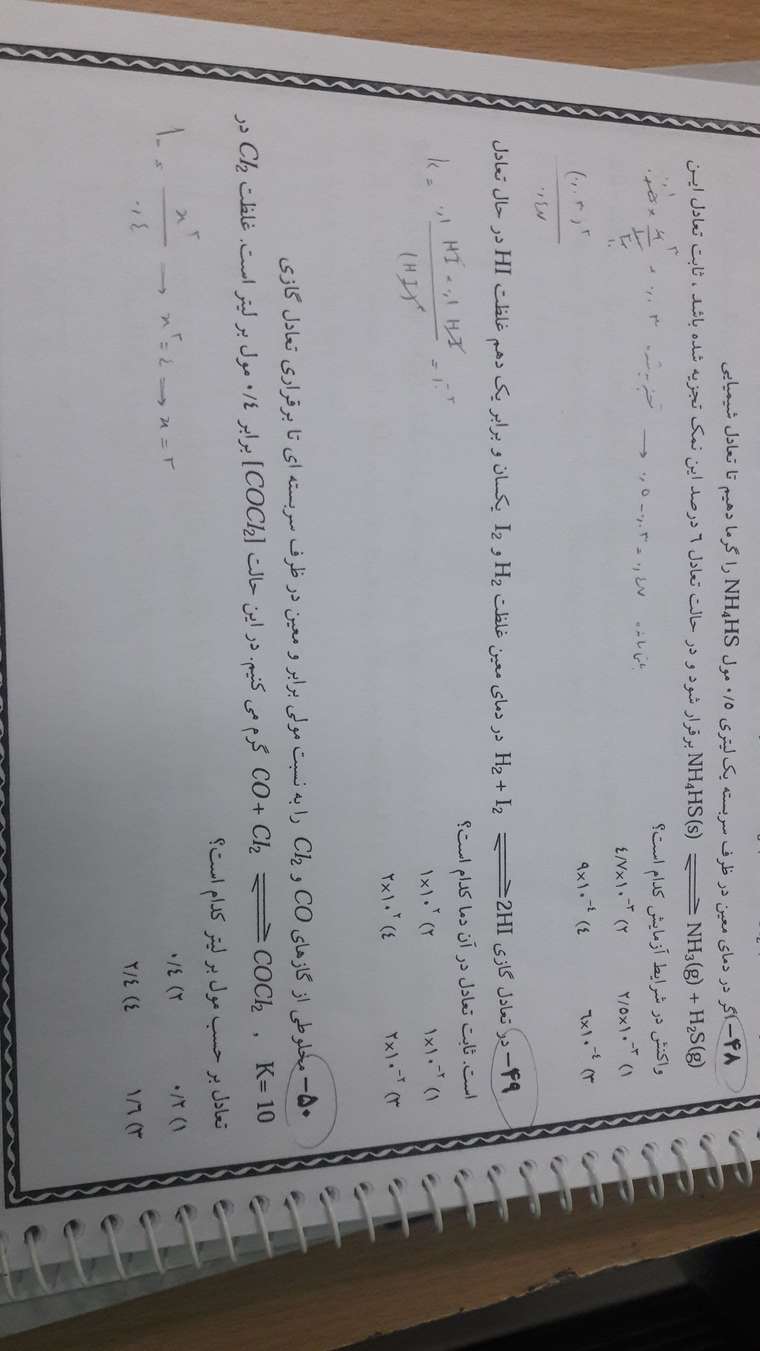 ۴۸- اگر در دمای معین در ظرف سربسته یک لیتری ۰/۵ مول NH₄HS را گرما دهیم تا تعادل شیمیایی
NH₄HS(s) ⇌ NH₃(g) + H₂S(g) برقرار شود و در حالت تعادل ۶ درصد این نمک تجزیه شده باشد، ثابت تعادل این
واکنش در شرایط آزمایش کدام است؟
۱) ۲/۵×۱۰⁻۳ ۲) ۴/۷×۱۰⁻۳
۳) ۶×۱۰⁻۴ ۴) ۹×۱۰⁻۴
۴۹- در تعادل گازی H₂ + I₂ ⇌ 2HI در دمای معین غلظت H₂ و I₂ یکسان و برابر یک دهم غلظت HI در حال تعادل
است. ثابت تعادل در آن دما کدام است؟
۱) ۱×۱۰⁻۲ ۲) ۱×۱۰۲
۳) ۲×۱۰⁻۲ ۴) ۲×۱۰۲
k = ۰٫۱ HI × ۰٫۱ HI / (HI)۲ = ۱۰⁻۲
۵۰- مخلوطی از گازهای CO و Cl₂ را به نسبت مولی برابر و معین در ظرف سربسته ای تا برقراری تعادل گازی
CO + Cl₂ ⇌ COCl₂ , K= 10 گرم می کنیم. در این حالت [COCl₂] برابر ۰/۴ مول بر لیتر است. غلظت Cl₂ در
تعادل بر حسب مول بر لیتر کدام است؟
۱) ۰/۲ ۲) ۰/۴
۳) ۱/۶ ۴) ۲/۴
x۲ / ۰٫۴ → x۲ = ۴ → x = ۲